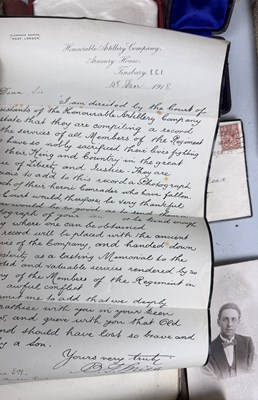 Honourable Artillery Company,
Armoury House,
Finsbury. E.C.1
1918
Dear Sir
I am directed by the Court of
Assistants of the Honourable Artillery Company
state that they are compiling a record
the services of all Members of the Regiment
have so nobly sacrificed their lives fighting
their King and Country in the great
of Liberty and Justice. They are
to add to this record a Photograph
each of their heroic Comrades who have fallen.
Court would therefore be very thankful
would be so good as to
photograph of your or be kind enough
where one can be obtained
record will be placed with the ancient
of the Company, and handed down
posterity as a lasting Memorial to the
and valuable services rendered by so
of the Members of the Regiment in
awful conflict
me to add that we deeply
with you in your keen
and grieve with you that Old
should have lost so brave and
a son.
Yours very truly